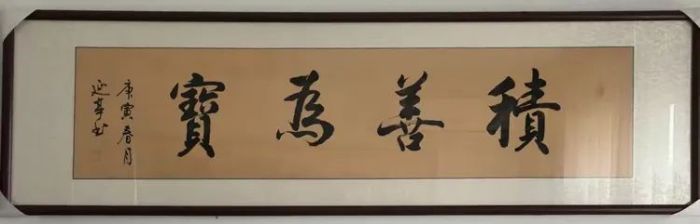 積善為寶
庚寅春月
延亭书